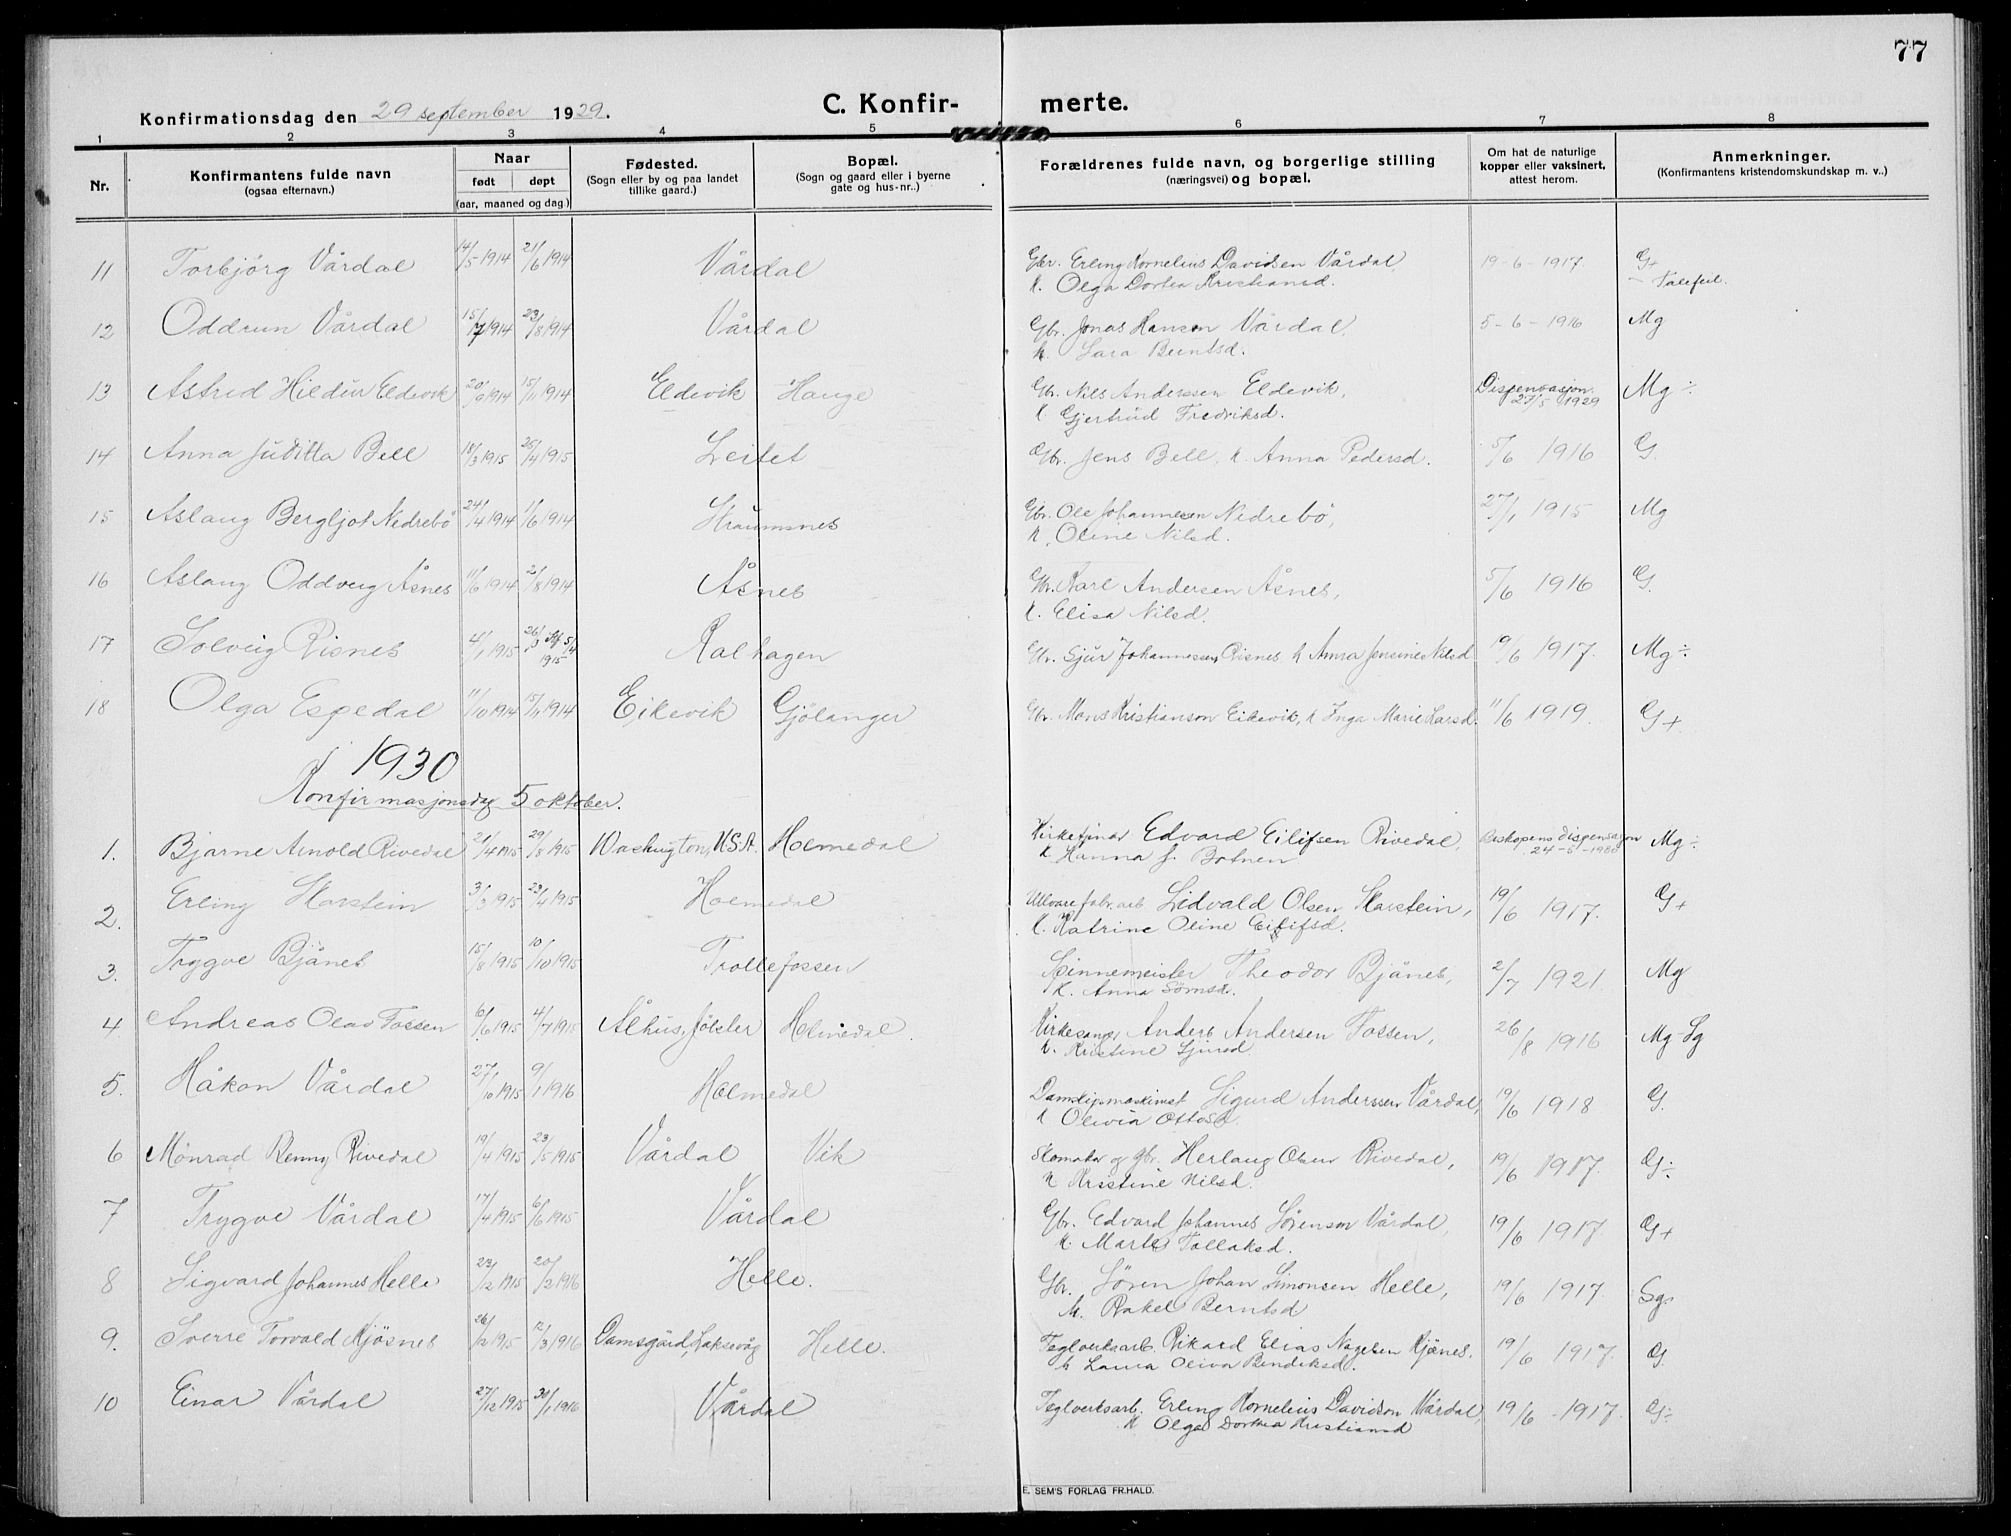 77
Konfirmationsdag den 29 september 1929.
C. Konfir- merte.
1 2 3 4 5 6 7 8
Nr.
Konfirmantens fulde navn
(ogsaa efternavn.)
Naar
født døpt
(aar, maaned og dag)
Fødested.
(Sogn eller by og paa landet
tillike gaard.)
Bopæl.
(Sogn og gaard eller i byerne
gate og hus-nr..)
Forældrenes fulde navn, og borgerlige stilling
(næringsvei) og bopæl.
Om hat de naturlige
kopper eller vaksinert,
attest herom.
Anmerkninger.
(Konfirmantens kristendomskundskap m. v..)
11 Torbjörg Vårdal 14/5 1914 21/6 1914 Vårdal Gbr. Erling Kornelius Davidsen Vårdal, 19-6-1917. G+
k. Olga Dortea Kristiansd. – Talefeil.
12 Oddrun Vårdal 15/7 1914 23/8 1914 Vårdal Gbr. Jonas Hansen Vårdal, 5-6-1916 Mg
k. Lara Berntsd.
13 Astrid Hildur Eldevik 20/9 1914 15/11 1914 Eldevik Hauge Gbr. Nils Anderssen Eldevik, Dispensasjon Mg ÷
k. Gjertrud Fredriksd. 27/5 1929
14 Anna Juditta Bell 18/3 1915 25/4 1915 Leitet Gbr. Jens Bell, k. Anna Pedersd. 5/6 1916 G.
15 Aslaug Bergljot Nedrebö 24/4 1914 1/6 1914 Straumsnes Gbr. Ole Johannesen Nedrebö, 27/1 1915 Mg
k. Oline Nilsd.
16 Aslaug Oddveig Åsnes 11/6 1914 2/8 1914 Åsnes Gbr. Karl Andersen Åsnes, 5/6 1916 G.
k. Elisa Nilsd.
17 Solveig Risnes 4/1 1915 26/3 5/4 1915 Kalhagen Gbr. Sjur Johannessen Risnes k Anna Jensine Nilsd 19/6 1917. Mg ÷
18 Olga Espedal 11/10 1914 15/11 1914 Eikevik Gjölanger Gbr. Mons Kristianson Eikevik, k Inga Marie Larsd. 11/6 1919. G+
1930
Konfirmasjonsdag 5 oktober.
1. Bjarne Arnold Rivedal 21/4 1915 29/8 1915 Washington, U.S.A. Holmedal Kirketjenar Edvard Eilifsen Rivedal, Biskopens dispensasjon Mg ÷
k. Hanna J. Botnen 24-5-1930
2. Erling Skarstein 3/3 1915 23/4 1915 Holmedal Ullvarefabr.arb Lidvald Olsen Skarstein, 19/6 1917. G+
k. Katrine Oline Eilifsd.
3. Trygve Bjånes 15/8 1915 10/10 1915 Trollefossen Theodor Bjånes, 2/7 1921. Mg
k. Anna
4 Andreas Olav Fossen 6/6 1915 4/7 1915 Ålhus, Jölster Holmedal. Kirkesanger Anders Andersen Fossen, 26/8 1916 Mg-Sg
k. Kristine Sjursd.
5. Håkon Vårdal 27/10 1915 9/1 1916 Holmedal Damskipsmaskinist Sigurd Anderssen Vårdal, 19/6 1918 G.
k Olivia Ottosd.
6 Monrad Remy Rivedal 19/4 1915 23/5 1915 Vårdal Vik Skomakar og gbr. Herlaug Olsen Rivedal, 19/6 1917. G÷
k Kristine Nilsd.
7 Trygve Vårdal 17/4 1915 6/6 1915 Vårdal Gbr. Edvard Johannes Sörenson Vårdal, 19/6 1917. G+
k. Marta Tollaksd.
8 Sigvard Johannes Helle 23/12 1915 20/2 1916 Helle. Gbr. Sören Johan Simonsen Helle, 19/6 1917. Sg.
k. Rakel Berntsd
9. Sverre Torvald Kjösnes 26/12 1915 12/3 1916 Damsgård, Laksevåg Helle. Teglverksarb. Rikard Elias Kjönes. 19/6 1917. G.
k Laura Oliva Bendiksd.
10 Einar Vårdal 27/12 1915 30/1 1916 Vårdal Teglverksarb. Erling Kornelius Davidson Vårdal, 19/6 - 1917. G÷
k Olga Dortea Kristiansd
E. SEM'S FORLAG FR.HALD.